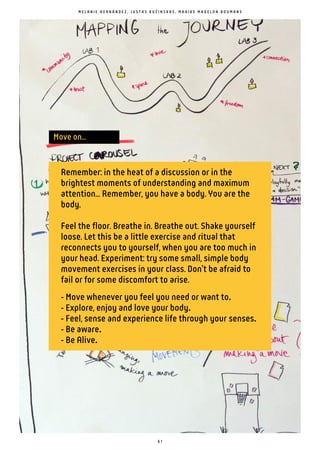 MELANIE HERNÁNDEZ, JUSTAS KUČINSKAS, MARIKE MADELON BOUMANS
MAPPING the JOURNEY
LAB 1
LAB 3
#community
#love
#connection
LAB 2
#trust
#space
#freedom
Move on...
PROJECT CAROUSEL
NEXT ?
Remember: in the heat of a discussion or in the
brightest moments of understanding and maximum
attention... Remember, you have a body. You are the
body.
Feel the floor. Breathe in. Breathe out. Shake yourself
loose. Let this be a little exercise and ritual that
reconnects you to yourself, when you are too much in
your head. Experiment: try some small, simple body
movement exercises in your class. Don't be afraid to
fail or for some discomfort to arise.
- Move whenever you feel you need or want to.
- Explore, enjoy and love your body.
- Feel, sense and experience life through your senses.
- Be aware.
- Be Alive.
MOVEMENT
making a move
making a move
61